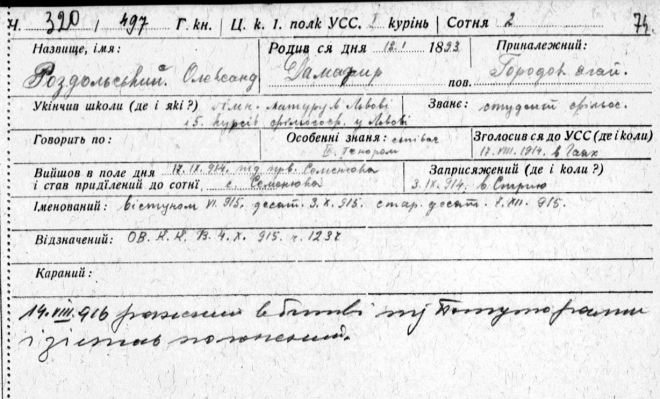 Ч. 320 / 497 Г. кн. | Ц. к. 1. полк УСС. I курінь | Сотня 2
74.
Назвище, імя: Роздольський Олександ
Родив ся дня 12.I 1893
Дамафир
Приналежний:
Городок ягай.
пов.
Укінчив школи (де і які?) гімн. матуру в Львові
і 5. курсів фільософ. у Львові
Званє: студент фільос.
Говорить по:
Особенні знаня: співак
II. тенором
Зголосив ся до УСС (де і коли)
17.VIII.1914. в Гаях
Вийшов в поле дня 12.IX.914. під пров. Семенюка
і став приділений до сотні с. Семенюка
Заприсяжений (де і коли?)
3.IX.914. в Стрию
Іменований: вістуном VI.915. десят. 3.X.915. стар. десят. 1.XII.915.
Відзначений: ОВ. К. К. В. 4. X. 915. ч. 1237
Караний:
14.VIII.916 ранений в битві під Потуторами
і зістав полонений.